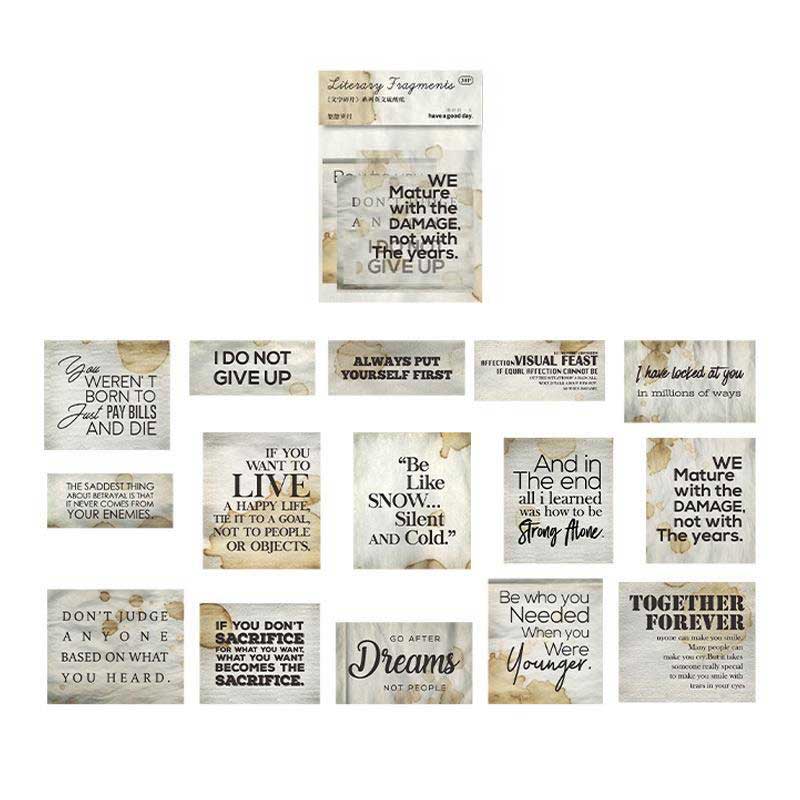 Literary Fragments
30P
have a good day.
WE
Mature
with the
DAMAGE,
not with
The years.
DON'T JUDGE
I DO NOT
GIVE UP
You
WEREN'T
BORN TO
Just PAY BILLS
AND DIE
I DO NOT
GIVE UP
ALWAYS PUT
YOURSELF FIRST
AFFECTION VISUAL FEAST
IF EQUAL AFFECTION CANNOT BE
I have locked at you
in millions of ways
THE SADDEST THING
ABOUT BETRAYAL IS THAT
IT NEVER COMES FROM
YOUR ENEMIES.
IF YOU
WANT TO
LIVE
A HAPPY LIFE,
TIE IT TO A GOAL,
NOT TO PEOPLE
OR OBJECTS.
“Be
Like
SNOW...
Silent
AND Cold.”
And in
The end
all i learned
was how to be
Strong Alone.
WE
Mature
with the
DAMAGE,
not with
The years.
DON'T JUDGE
ANYONE
BASED ON WHAT
YOU HEARD.
IF YOU DON'T
SACRIFICE
FOR WHAT YOU WANT,
WHAT YOU WANT
BECOMES THE
SACRIFICE.
GO AFTER
Dreams
NOT PEOPLE
Be who you
Needed
When you
Were
Younger.
TOGETHER
FOREVER
nyone can make you smile,
Many people can
make you cry.But it takes
someone really special
to make you smile with
tears in your eyes